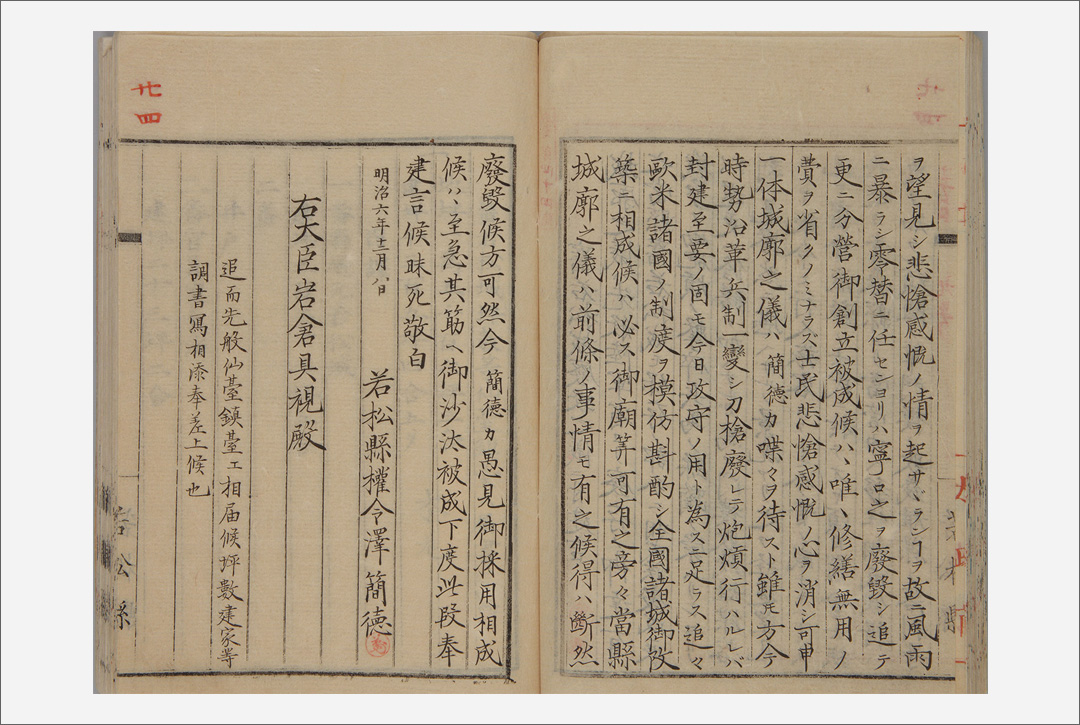 ヲ望見シ悲愴感慨ノ情ヲ起サヾランヿヲ故ニ風雨
ニ暴ラシ零替ニ任センヨリハ寧ロ之ヲ廢毀シ追テ
更ニ分營御創立被成候ハヽ唯ヽ修繕無用ノ
費ヲ省クノミナラス士民悲愴感慨ノ心ヲ消シ可申
一体城廓之儀ハ簡德カ喋々ヲ待スト雖𪜈方今
時勢沿革兵制一變シ刀槍廢レテ炮熕行ハルレバ
封建至要ノ固モ今日攻守ノ用ト為スニ足ラス追々
歐米諸國ノ制度ヲ模仿斟酌シ全國諸城御改
築ニ相成候ハ必ス御廟筭可有之旁々當縣
城廓之儀ハ前條ノ事情モ有之候得ハ斷然
廢毀候方可然今簡德カ愚見御採用相成
候ハヽ至急其筋ヘ御沙汰被成下度此段奉
建言候昧死敬白
明治六年十二月八日
若松縣權令澤簡德
右大臣岩倉具視殿
追而先般仙臺鎮臺エ相届候坪數建家等
調書寫相添奉差上候也
廿四
若松縣